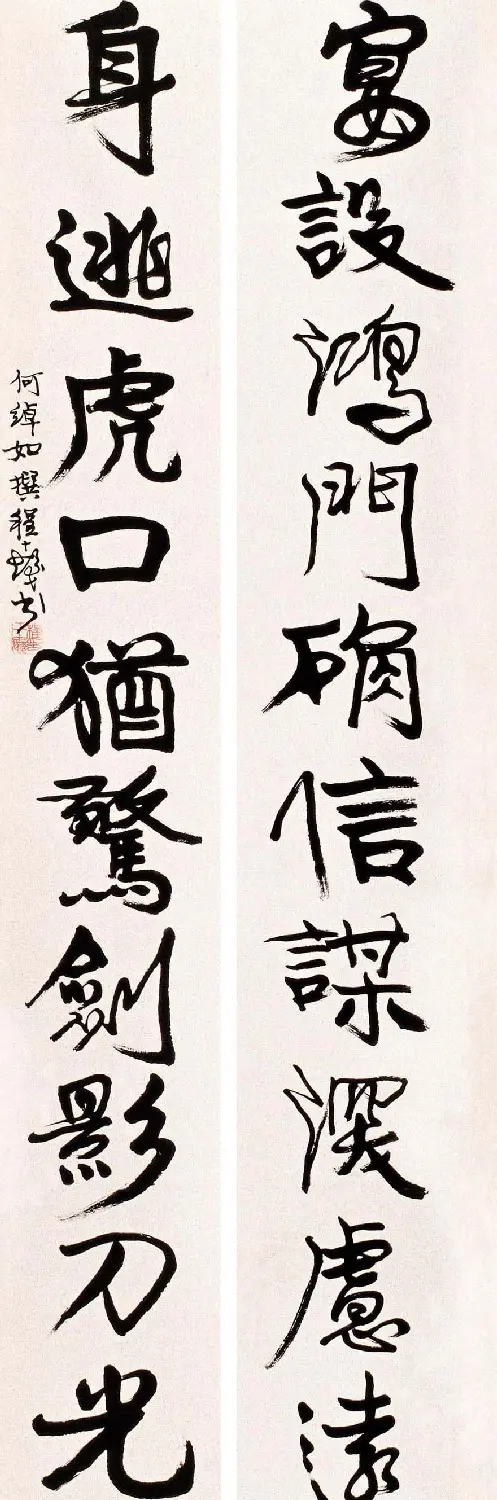 宴設鴻門确信謀深慮遠
身逃虎口猶驚劍影刀光
何綽如撰程十髮书